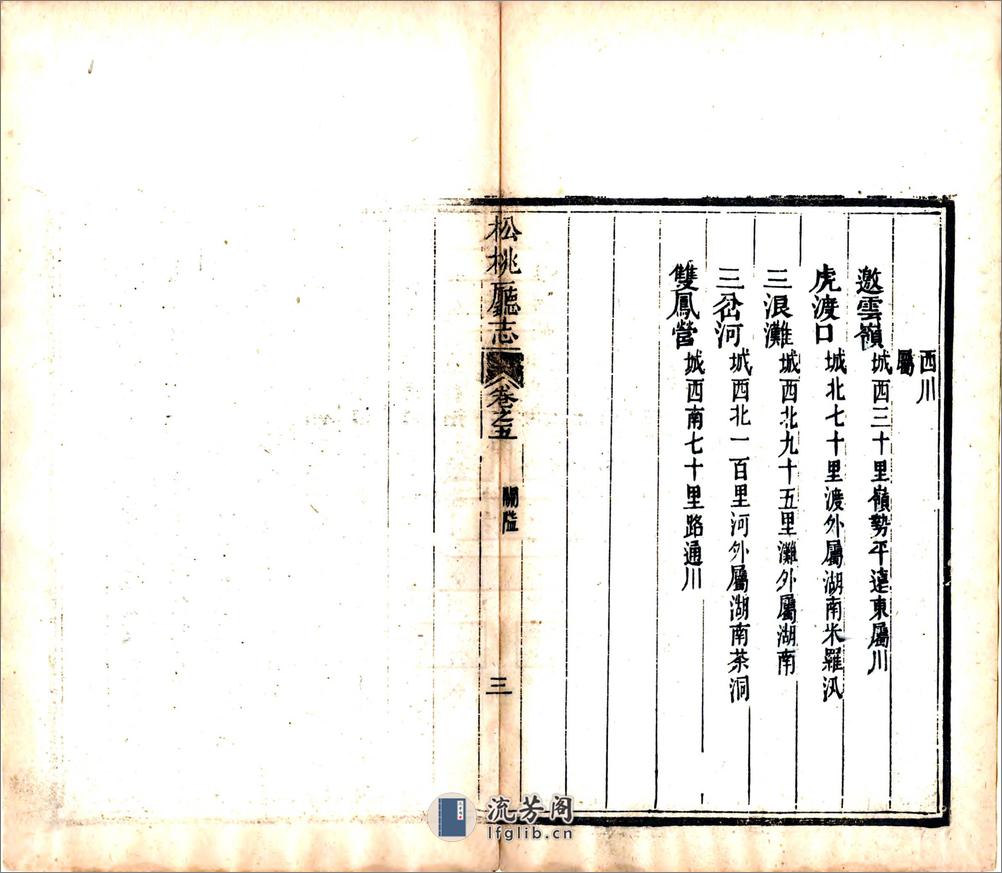 西川
屬
邀雲嶺城西三十里嶺勢平達東屬川
虎渡口城北七十里渡外屬湖南米羅汛
三浪灘城西北九十五里灘外屬湖南
三岔河城西北一百里河外屬湖南茶洞
雙鳳營城西南七十里路通川
松桃廳志
卷之五
關隘
三
流芳阁
lfglib.cn